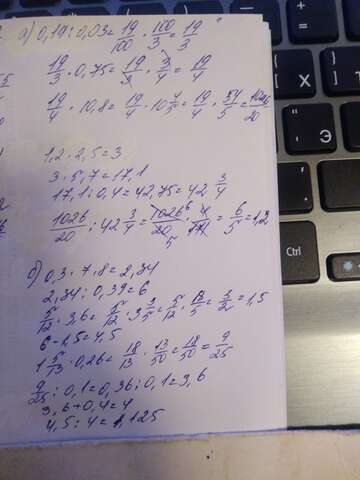 а) 0,19 : 0,03 = 19/100 · 100/3 = 19/3
19/3 · 0,75 = 19/3 · 3/4 = 19/4
19/4 · 10,8 = 19/4 · 10 4/5 = 19/4 · 54/5 = 1026/20
1,2 · 2,5 = 3
3 · 5,7 = 17,1
17,1 : 0,4 = 42,75 = 42 3/4
1026/20 : 42 3/4 = 1026/20 · 4/171 = 6/5 = 1,2
б) 0,3 · 7,8 = 2,34
2,34 : 0,39 = 6
5/12 · 3,6 = 5/12 · 3 3/5 = 5/12 · 18/5 = 3/2 = 1,5
6 - 1,5 = 4,5
1 5/13 · 0,26 = 18/13 · 13/50 = 18/50 = 9/25
9/25 : 0,1 = 0,36 : 0,1 = 3,6
3,6 + 0,4 = 4
4,5 : 4 = 1,125